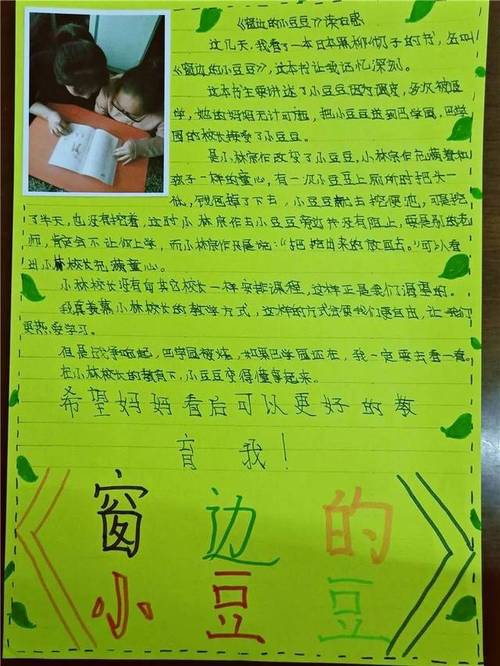 《窗边的小豆豆》读后感
这几天,我看了一本日本黑柳彻子的书,名叫
《窗边的小豆豆》,这本书让我记忆深刻。
这本书主要讲述了小豆豆因为调皮,多次被退
学,她的妈妈无计可施,把小豆豆送到巴学园,巴学
园的校长接受了小豆豆。
是小林宗作改变了小豆豆,小林宗作充满着和
孩子一样的童心,有一次小豆豆上厕所时把头一
低,钱包掉了下去,小豆豆就去挖便池,可是挖
了半天,也没有挖着,这时小林宗作去小豆豆旁边并没有阻止,要是别的老
师,肯定会不让你上学,而小林宗作只是说:“把挖出来的放回去。”可以看
出小林校长充满童心。
小林校长没有向其它校长一样安排课程,这样正是我们渴望的。
我真羡慕小林校长的教学方式,这样的方式会使我们更自由,让我们
更热爱学习。
但是战争响起,巴学园被烧,如果巴学园还在,我一定要去看一看。
在小林校长的教育下,小豆豆变得懂事起来。
希望妈妈看后可以更好的教
育我!
《窗边的
小豆豆》